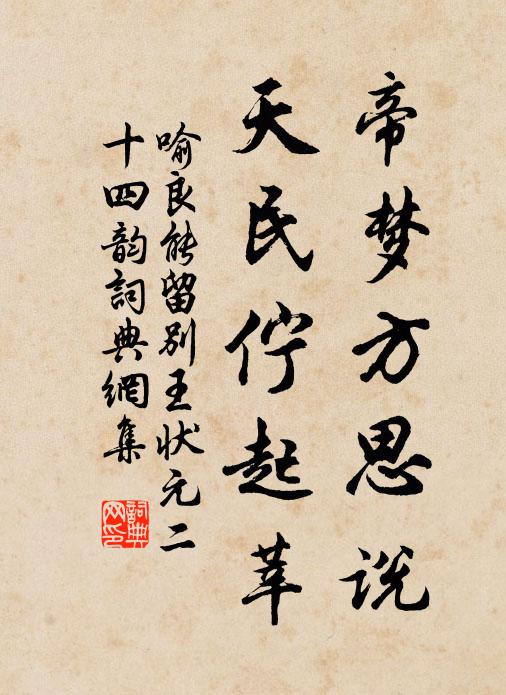 帝梦方思说
天民伫起莘
喻良能留别王状元二
十四韵詞典網集
詞典网印